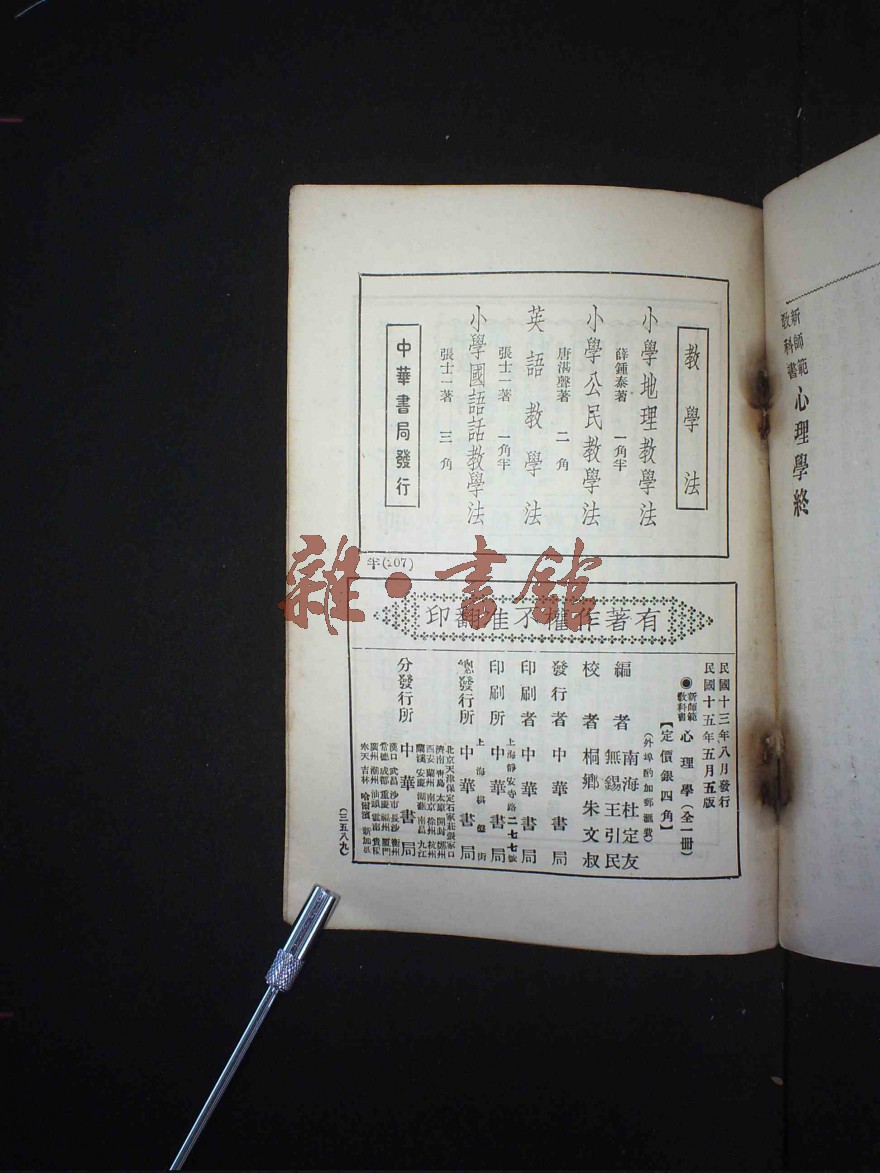 新師範
教科書 心理學終
教學法
小學地理教學法
薛鍾泰著 一角半
小學公民教學法
唐湛聲著 二角
英語教學法
張士一著 一角半
小學國語話教學法
張士一著 三角
中華書局發行
半(207)
有著作權不准翻印
民國十三年八月發行
民國十五年五月五版
新師範
教科書
●心理學(全一冊)
【定價銀四角】
(外埠酌加郵匯費)
編者 南海杜定友
無錫王引民
校者 桐鄉朱文叔
發行者 中華書局
印刷者 中華書局
上海靜安寺路二七七號
印刷所 中華書局
上海棋盤街
總發行所 中華書局
分發行所 中華書局
北京天津保定石家莊張家口
濟南青島太原開封鄭州
西安蘭州南京徐州杭州
蘭溪安慶蕪湖南昌九江
漢口武昌沙市長沙衡州
常德成都重慶福州廈門
廣州潮州汕頭雲南貴陽
奉天吉林哈爾濱新加坡
(三五八九)
雜·書館